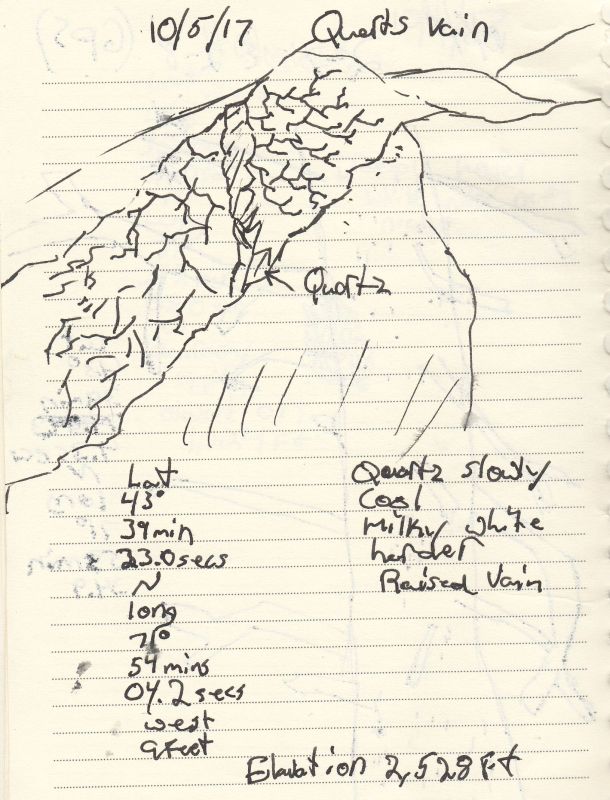 10/5/17 Querts Vain
Quartz
Lat
43°
39min
23.0secs
N
long
71°
54 mins
04.2 secs
west
9Feet
Quartz slowly
Cool
Milky white
harder
Raised Vain
Elavation 2,528 Ft